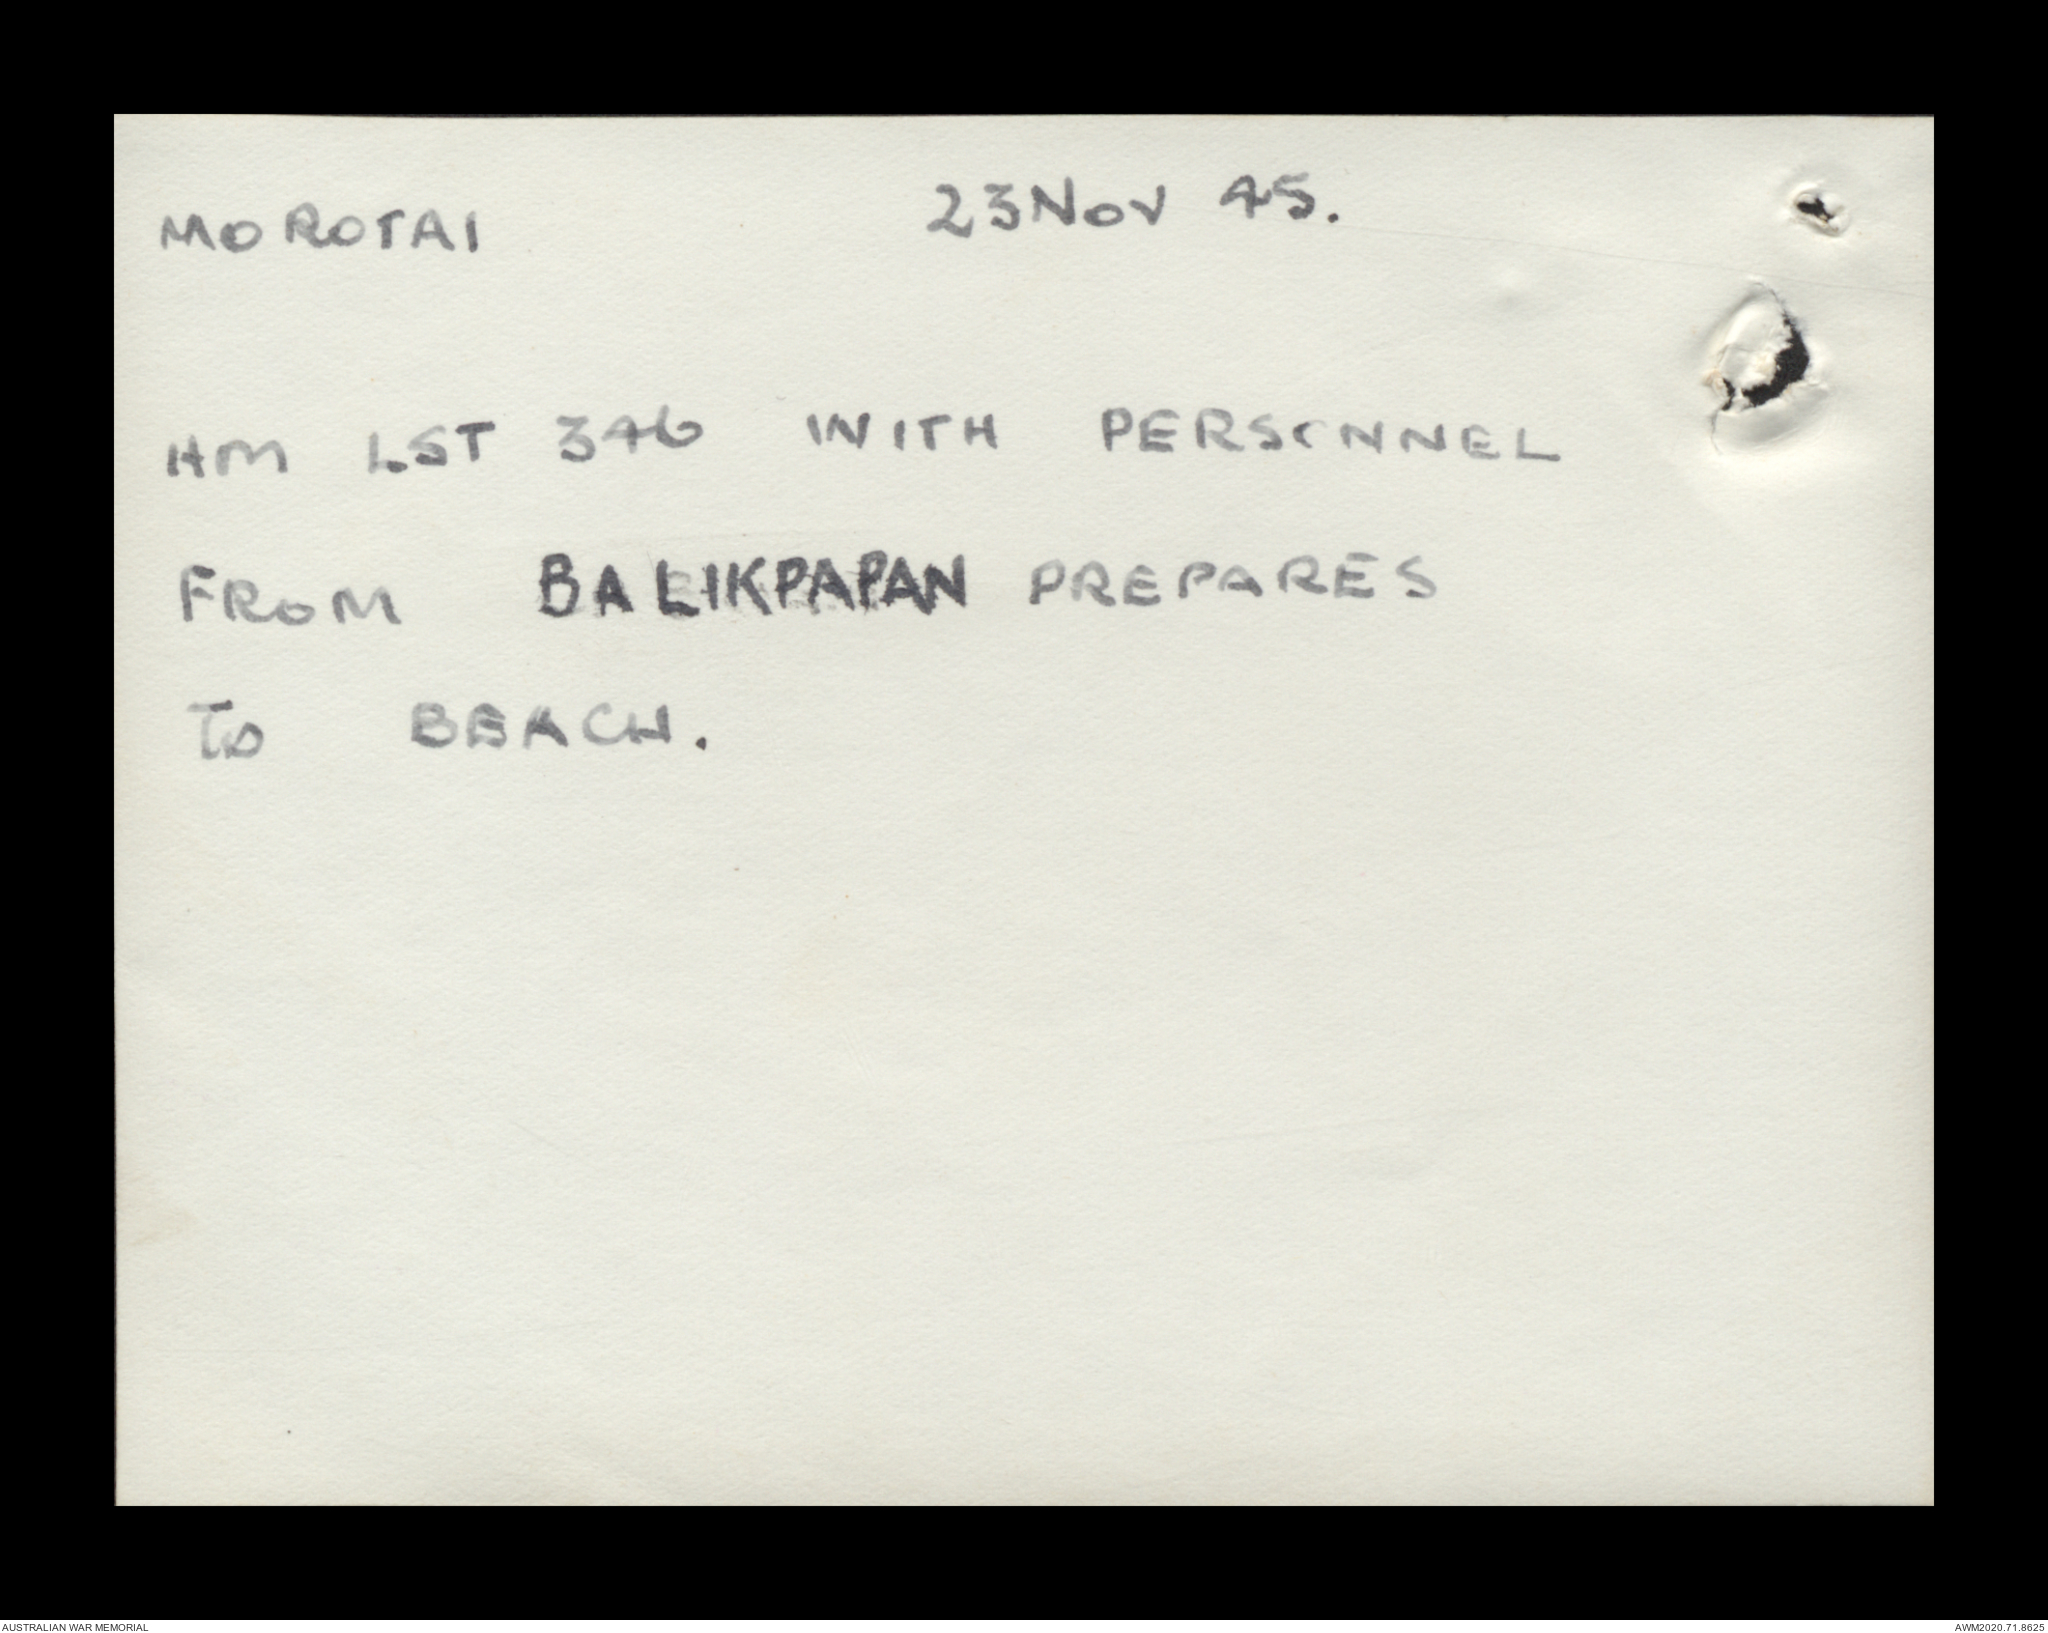 MOROTAI 23 Nov 45.
HM LST 346 WITH PERSONNEL
FROM BALIKPAPAN PREPARES
To BEACH.
AUSTRALIAN WAR MEMORIAL AWM2020.71.8625